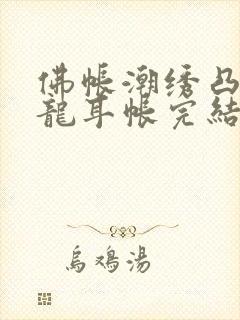 佛帐潮绣凸
龍耳帐完結
烏鳮湯